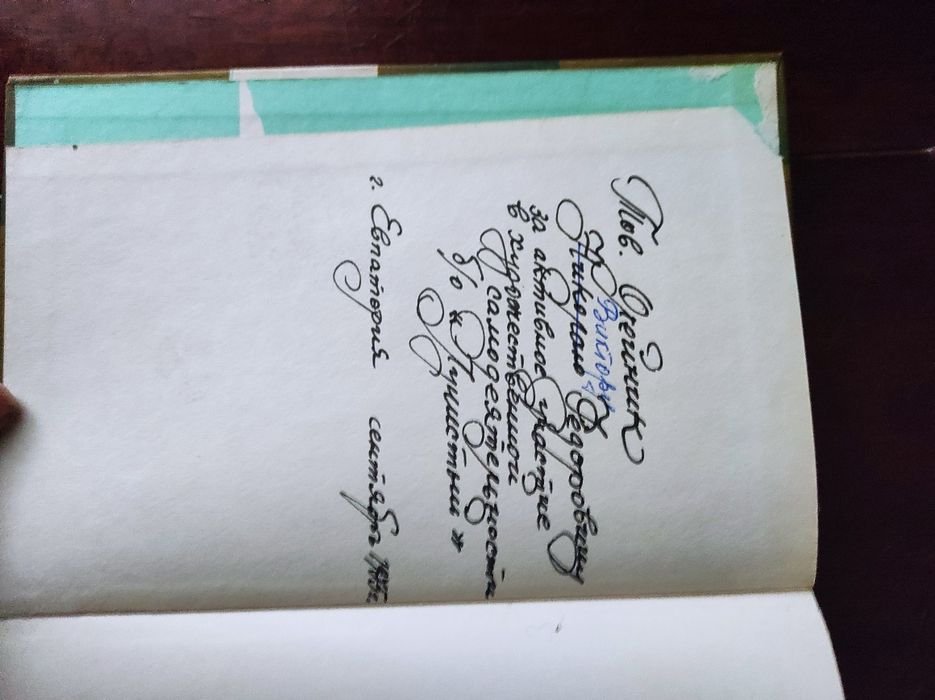 Тов. Олейник
Виктору
Николаю Федоровичу
за активное участие
в художественной
самодеятельности
б/о «Лучистый»
г. Евпатория сентябрь 1985г.